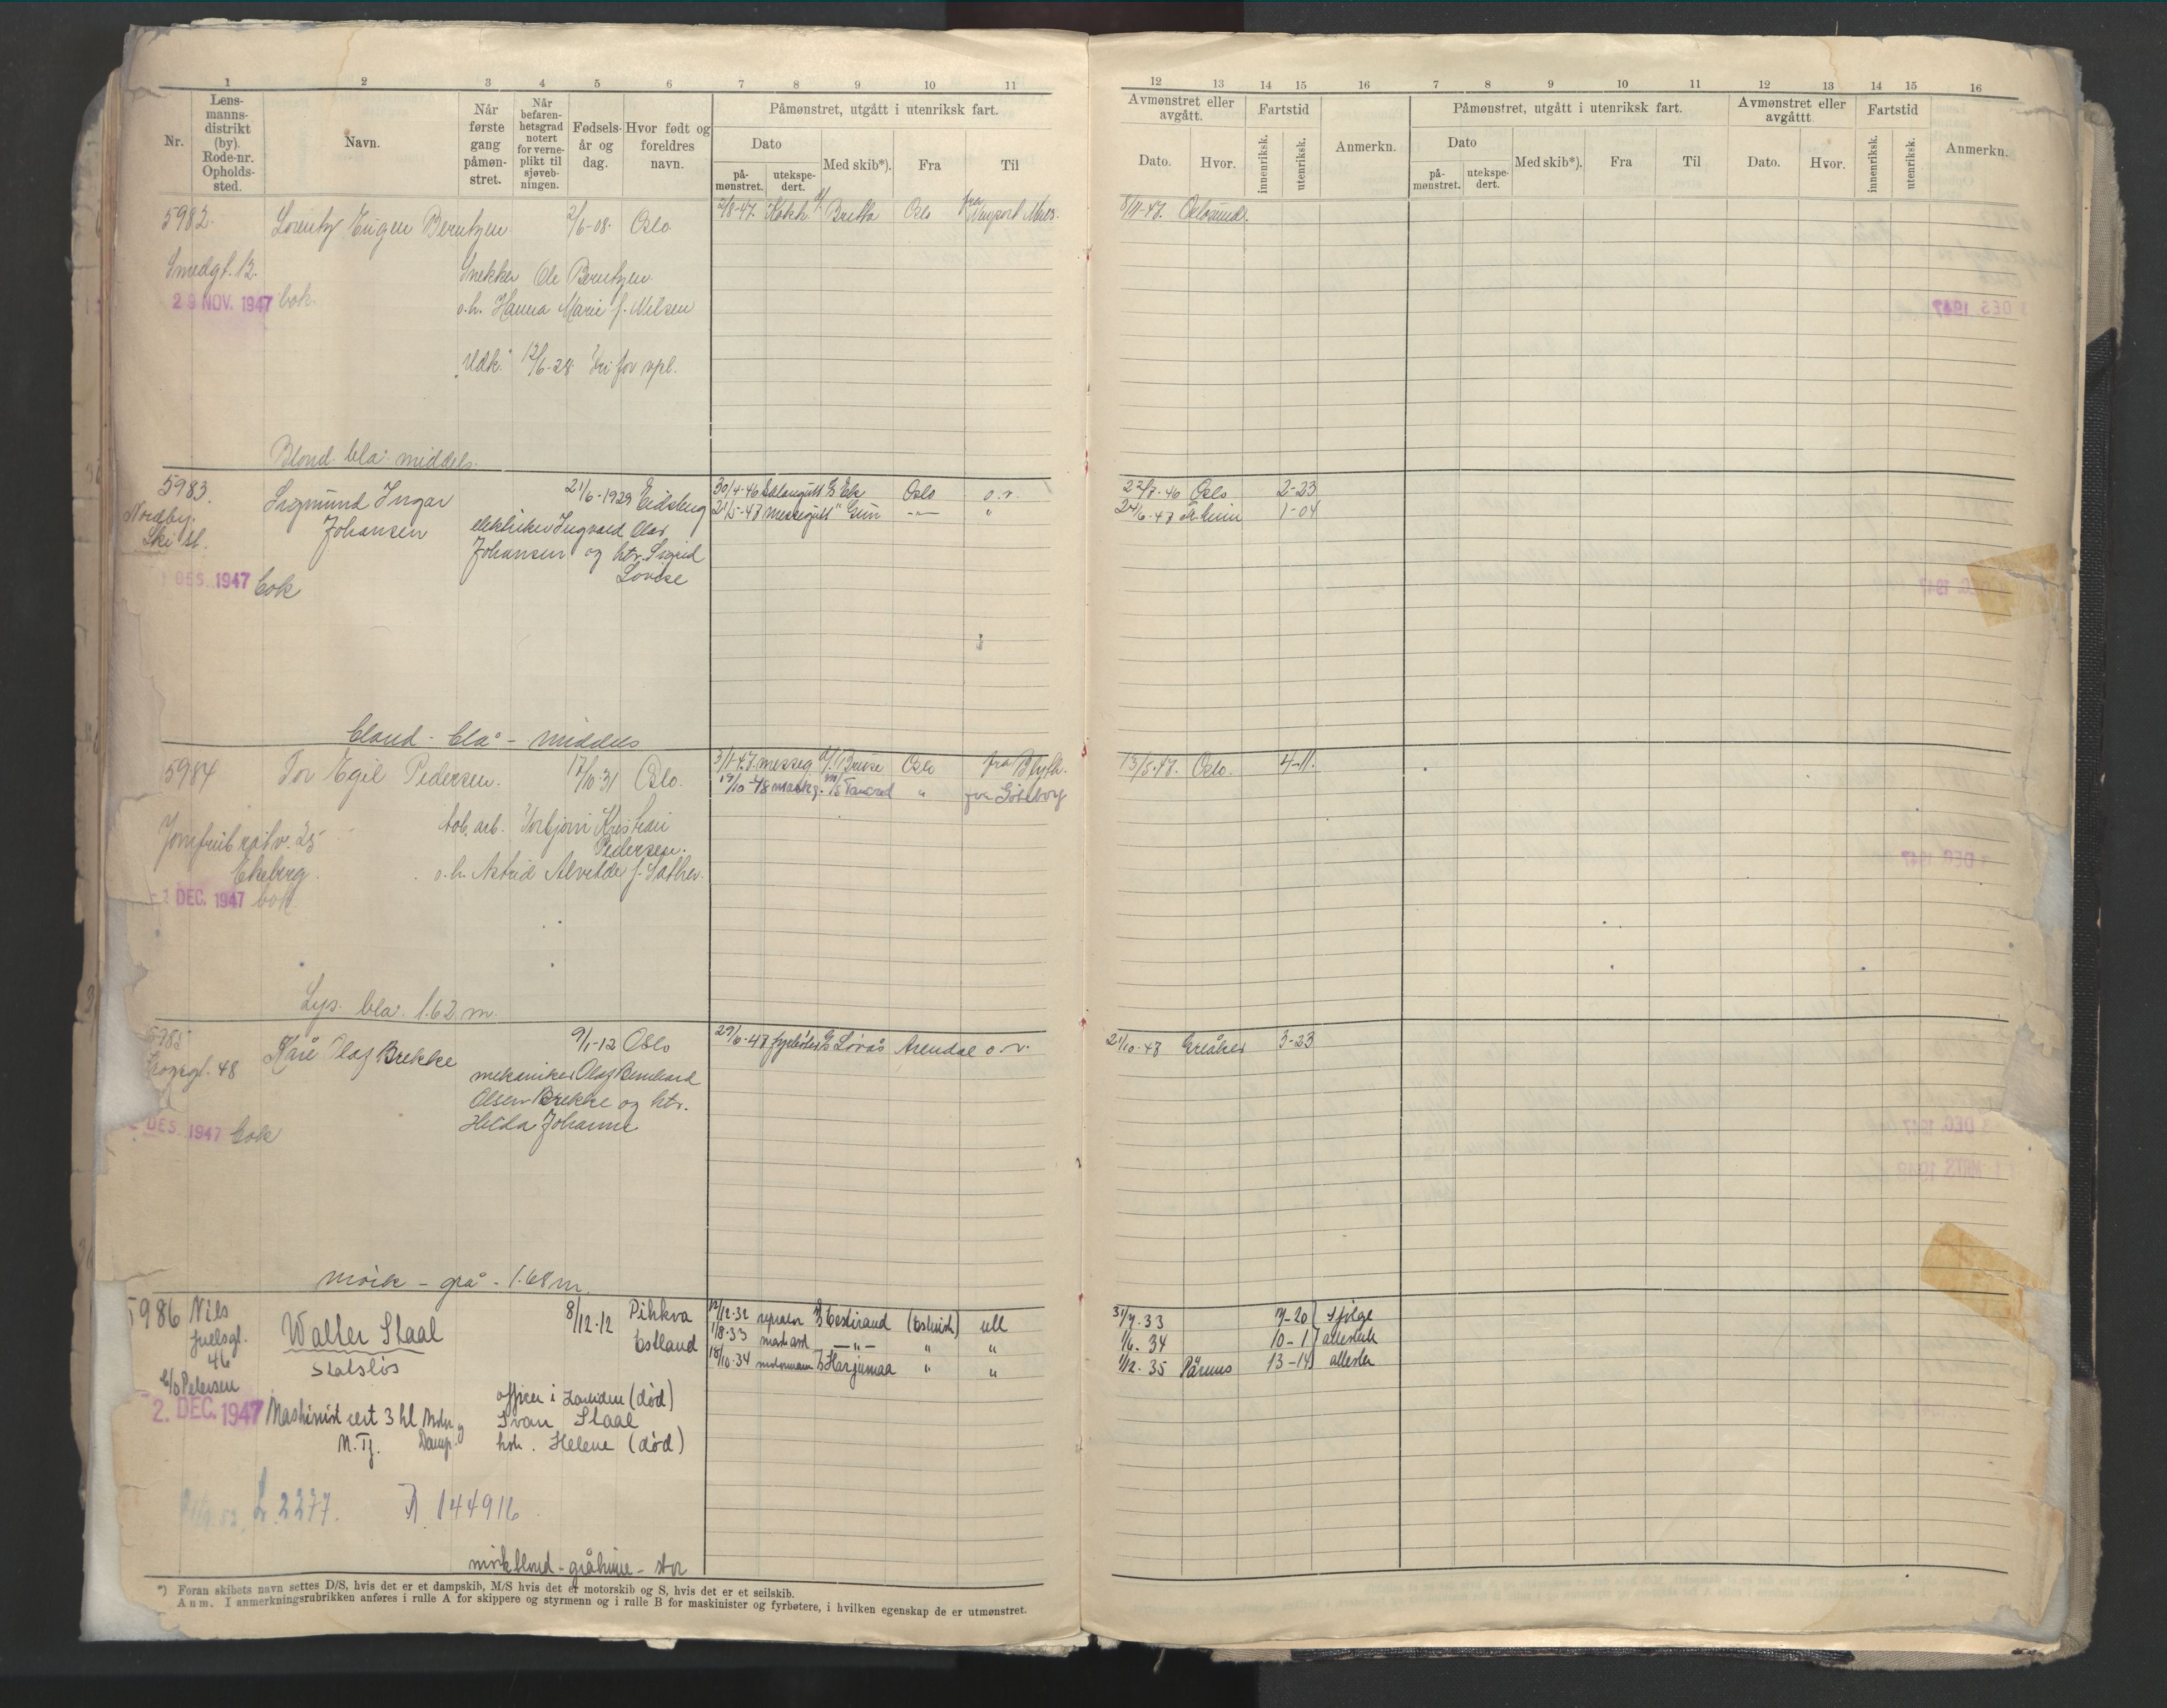 1 2 3 4 5 6 7 8 9 10 11
Nr.
Lens-
manns-
distrikt
(by).
Rode-nr.
Opholds-
sted.
Navn.
Når
første
gang
påmøn-
stret.
Når
befaren-
hetsgrad
notert
for verne-
plikt til
sjøveb-
ningen.
Fødsels-
år og
dag.
Hvor født og
foreldres
navn.
Påmønstret, utgått i utenriksk fart.
Dato
på-
mønstret.
utekspe-
dert.
Med skib*).
Fra
Til
5982. Lorentz Eugen Berntzen 2/6-08. Oslo
2/8-47. Kokk Britta Oslo fra
Smedgt. 12. Snekker Ole Berntzen
29 NOV. 1947 bok. o.h. Hanna Marie f. Nilsen
Udk. 12/6-28 Fri for vpl.
Blond. blå. middels.
5983. Sigmund Ingar 21/6-1929 Eidsberg
30/4-46 Salongutt Ek Oslo o.r.
Nordby. Johansen elektriker Ingvard Olav
21/5-47 messegutt " Gun -"- "
Ski st. Johansen og htr. Sigrid
Lovise
DES. 1947 bok
bland - blå - middels
5984 Tor Egil Pedersen. 17/10-31 Oslo.
3/1-47. messeg Bruse Oslo fra Blyth.
19/10-48 maskg. M/S Tancred " fra Göteborg
Jomfrubråtv. 25 tob. arb. Torbjørn Kristian
Pedersen.
Ekeberg. o.h. Astrid Alvilde f. Sather.
-2 DEC. 1947 bok.
Lys. blå. 1.62 m.
5985 Kåre Olaf Brekke 9/1-12 Oslo
29/6-47 fyrbøter Løvås Arendal o.r.
gt. 48 mekaniker Olaf Bernhard
Olsen Brekke og htr.
Hilda Johanne
DES. 1947 bok
mörk - grå - 1.68 m.
5986 Nils Walter Staal 8/12-12 Pihkva
Juelsgt. Estland
46 statslös
c/o Petersen
12/12-32 Eestirand ull
1/8-33 mask ass -"- " "
18/10-34 motormann Harjumaa " "
2. DEC. 1947 Maskinist cert 3 kl
M. Tj. Damp.
officer i (død)
Ivan Staal
hstr. Helene (død)
L. 2277. A 144916
mörkblond - gråbrune - stor
*) Foran skibets navn settes D/S, hvis det er et dampskib, M/S hvis det er motorskib og S, hvis det er et seilskib.
Anm. I anmerkningsrubrikken anføres i rulle A for skippere og styrmenn og i rulle B for maskinister og fyrbøtere, i hvilken egenskap de er utmønstret.
12 13 14 15 16 7 8 9 10 11 12 13 14 15 16
Avmønstret eller
avgått.
Dato.
Hvor.
Fartstid
innenriksk.
utenriksk.
Anmerkn.
Påmønstret, utgått i utenriksk fart.
Dato
på-
mønstret.
utekspe-
dert.
Med skib*).
Fra
Til
Avmønstret eller
avgåttt.
Dato.
Hvor.
Fartstid
innenriksk.
utenriksk.
Anmerkn.
8/11-47.
22/7-46 Oslo 2-23
24/6-47 1-04
13/5-47. Oslo. 4-11.
21/10-47 Greåker 3-23
31/7.33 7-20 Ifølge
1/6. 34 10-1 attester
1/12. 35 Pärnus 13-14 attester